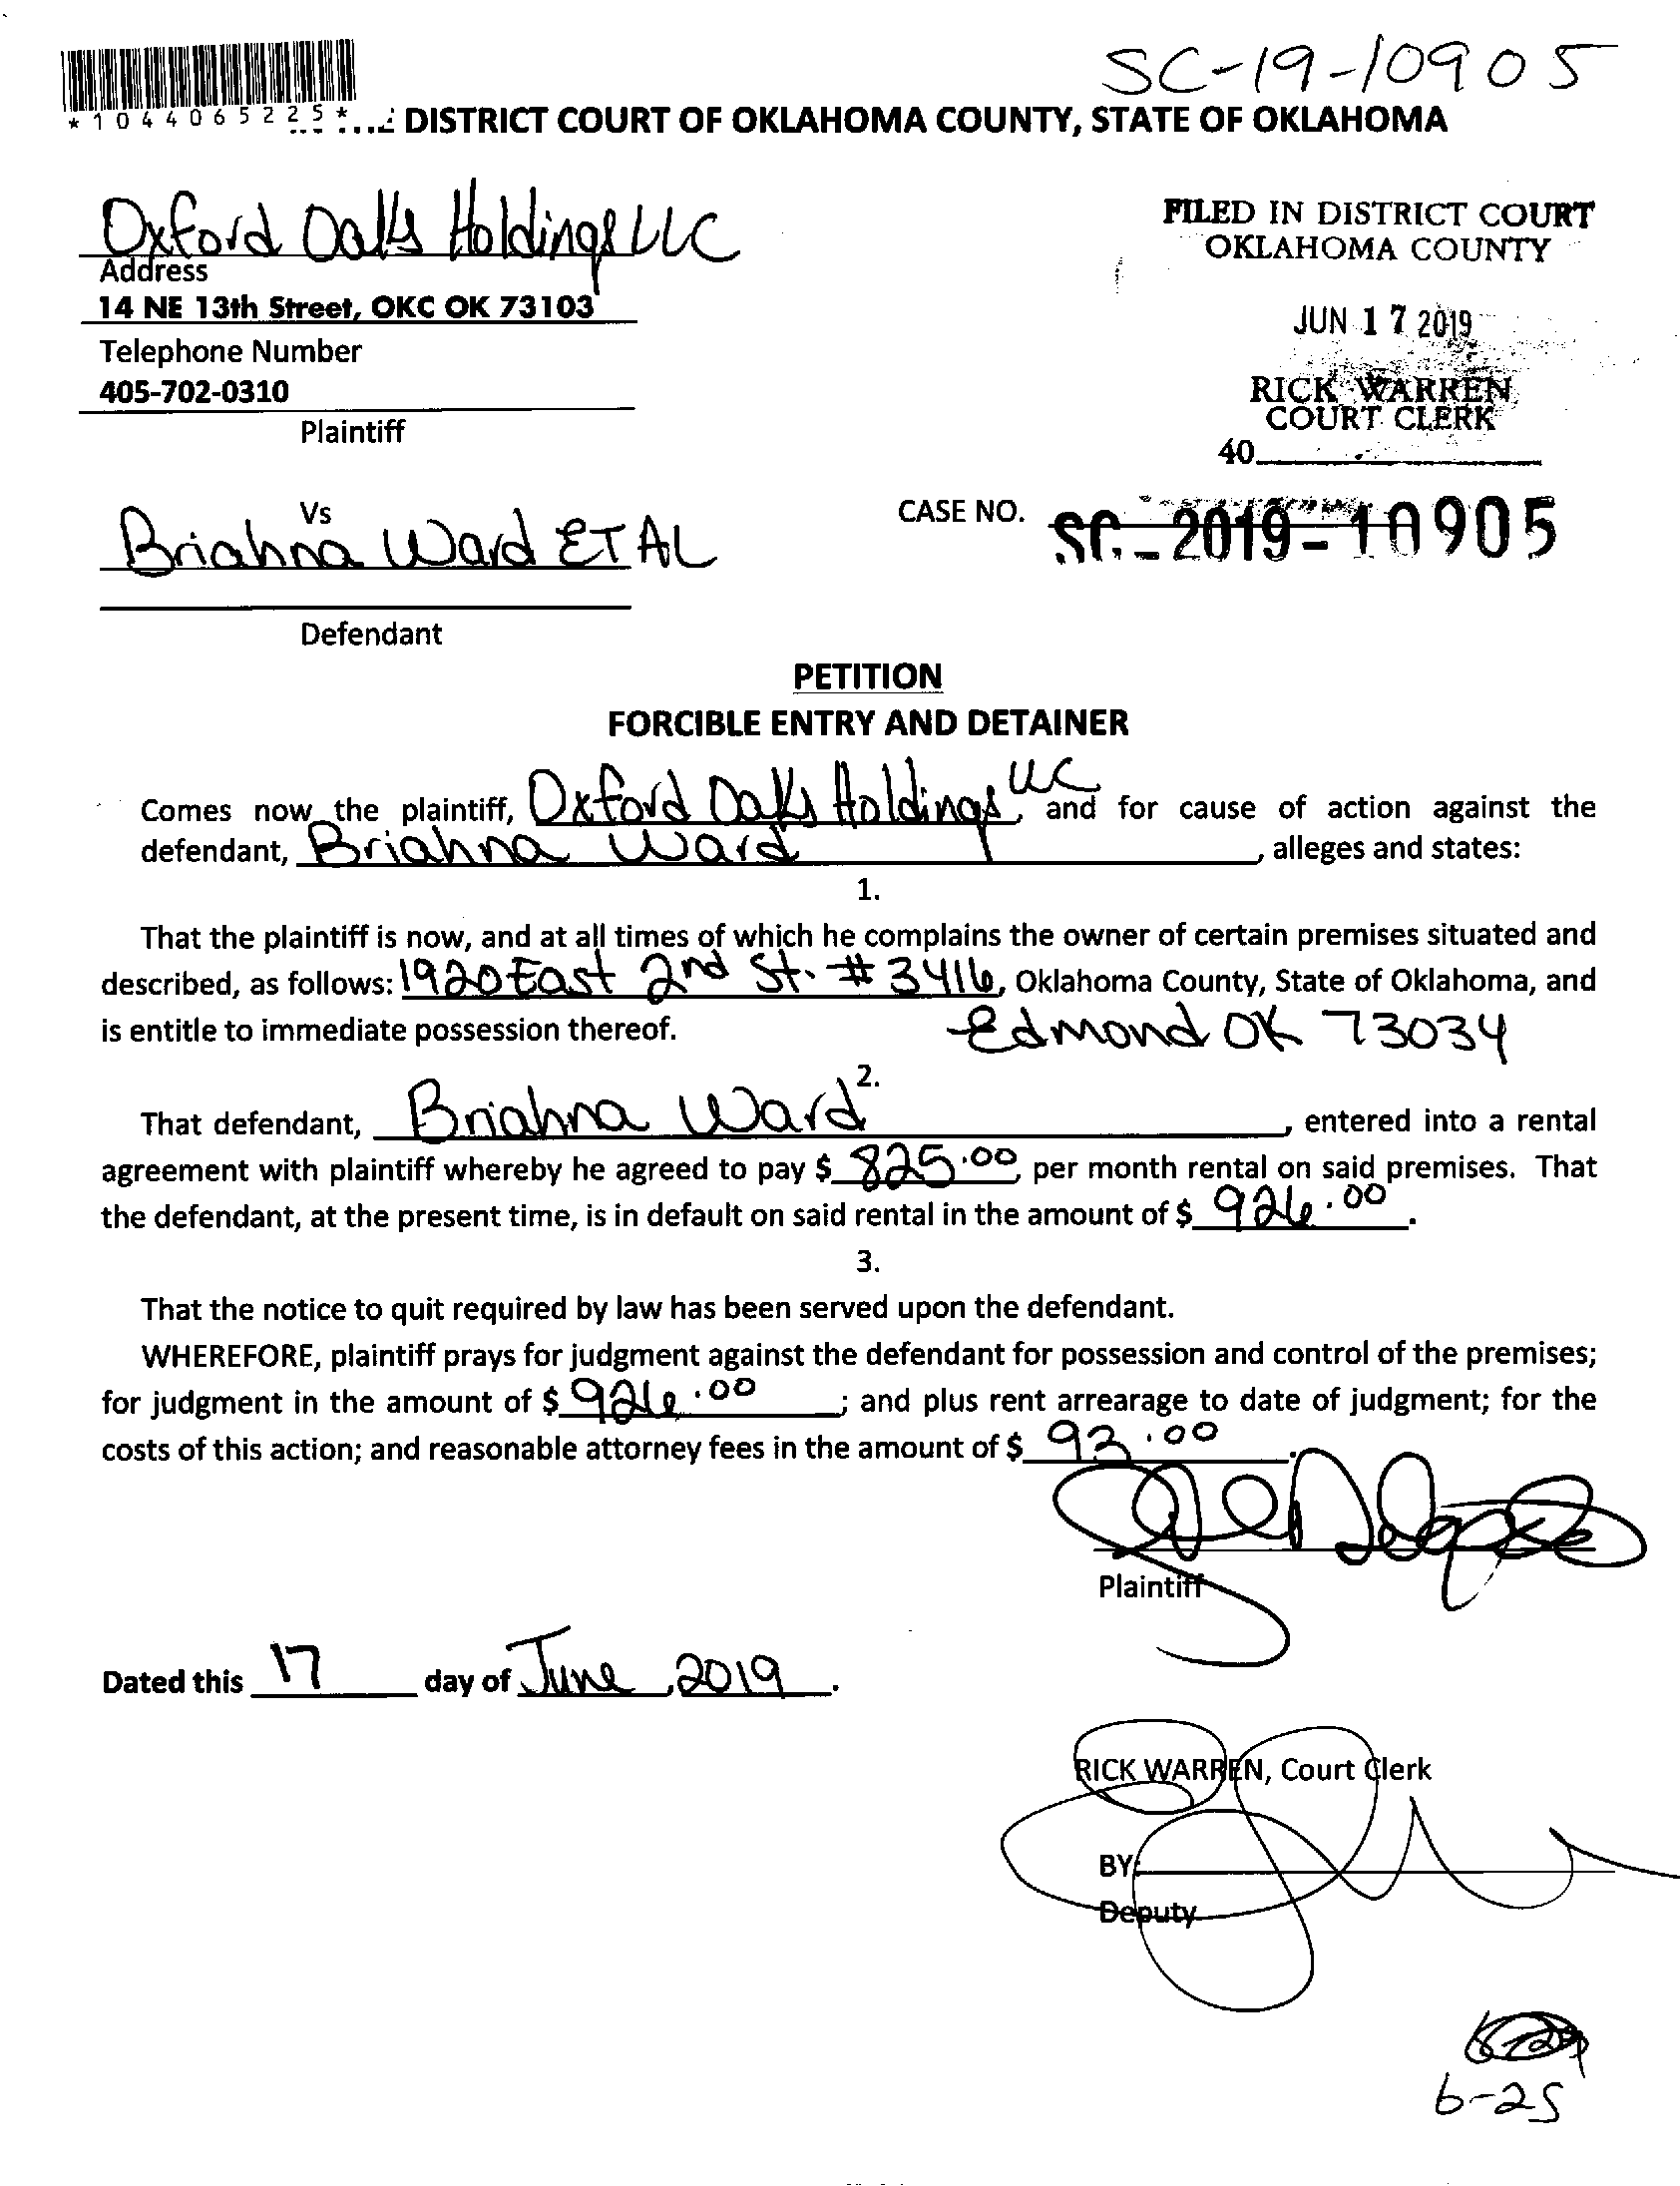 SC-19-10905
*1044065225*
DISTRICT COURT OF OKLAHOMA COUNTY, STATE OF OKLAHOMA
Oxford Oaks Holdings LLC
Address
14 NE 13th Street, OKC OK 73103
Telephone Number
405-702-0310
Plaintiff
FILED IN DISTRICT COURT
OKLAHOMA COUNTY
JUN 17 2019
RICK WARREN
COURT CLERK
40
Vs
Briahna Ward ET AL
Defendant
CASE NO. SC-2019-10905
PETITION
FORCIBLE ENTRY AND DETAINER
Comes now the plaintiff, Oxford Oaks Holdings, LLC and for cause of action against the
defendant, Briahna Ward, alleges and states:
1.
That the plaintiff is now, and at all times of which he complains the owner of certain premises situated and
described, as follows: 1920 East 2nd St. # 3416, Oklahoma County, State of Oklahoma, and
is entitle to immediate possession thereof. Edmond OK 73034
2.
That defendant, Briahna Ward, entered into a rental
agreement with plaintiff whereby he agreed to pay $ 825.00 per month rental on said premises. That
the defendant, at the present time, is in default on said rental in the amount of $ 926.00.
3.
That the notice to quit required by law has been served upon the defendant.
WHEREFORE, plaintiff prays for judgment against the defendant for possession and control of the premises;
for judgment in the amount of $ 926.00; and plus rent arrearage to date of judgment; for the
costs of this action; and reasonable attorney fees in the amount of $ 93.00.
Plaintiff
Dated this 17 day of June, 2019.
RICK WARREN, Court Clerk
BY:
Deputy
6-25